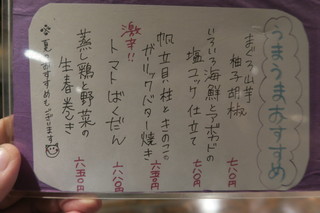 うまうまおすすめ
まぐろ山芋
柚子胡椒
七〇〇円
いろいろ海鮮とアボカドの
塩ユッケ仕立て
七八〇円
帆立貝柱ときのこの
ガーリックバター焼き
六五〇円
激辛!!
トマトばくだん
六八〇円
蒸し鶏と野菜の
生春巻き
六五〇円
おすすめもございます